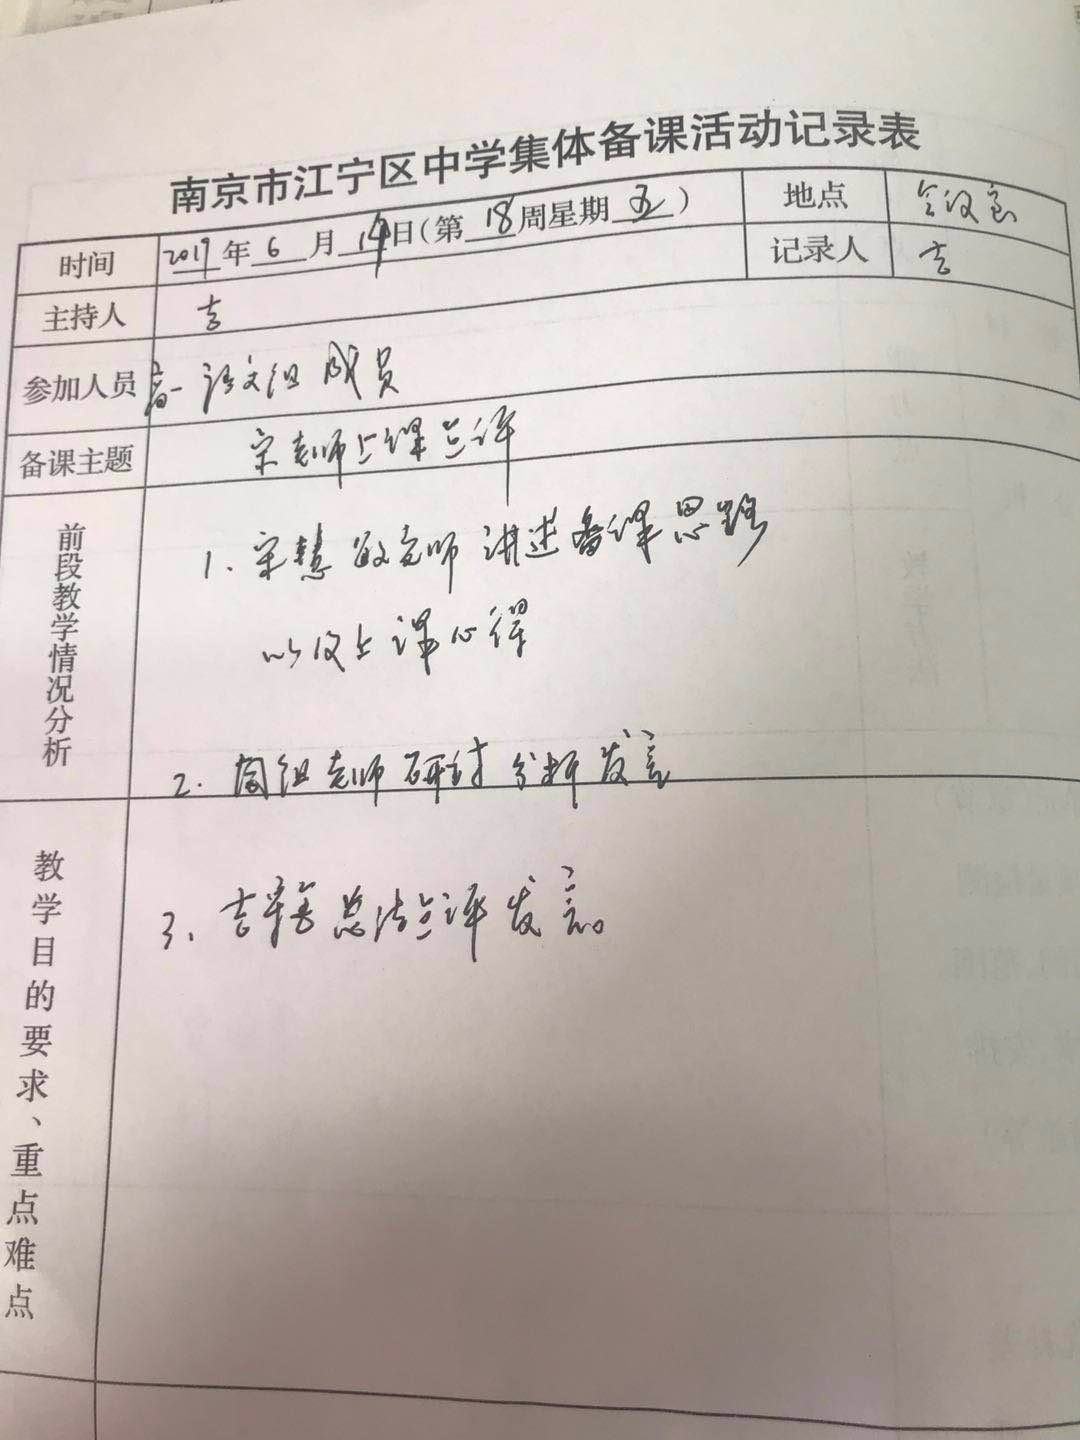 南京市江宁区中学集体备课活动记录表
时间 2019年6月14日(第18周星期五) 地点 会议室
记录人 吉
主持人 吉
参加人员 高一语文组成员
备课主题 宋老师上课点评
前段教学情况分析
1. 宋慧敏老师讲述备课思路
以及上课心得
2. 同组老师研讨分析发言
教学目的要求、重点难点
3、吉 总结点评发言。